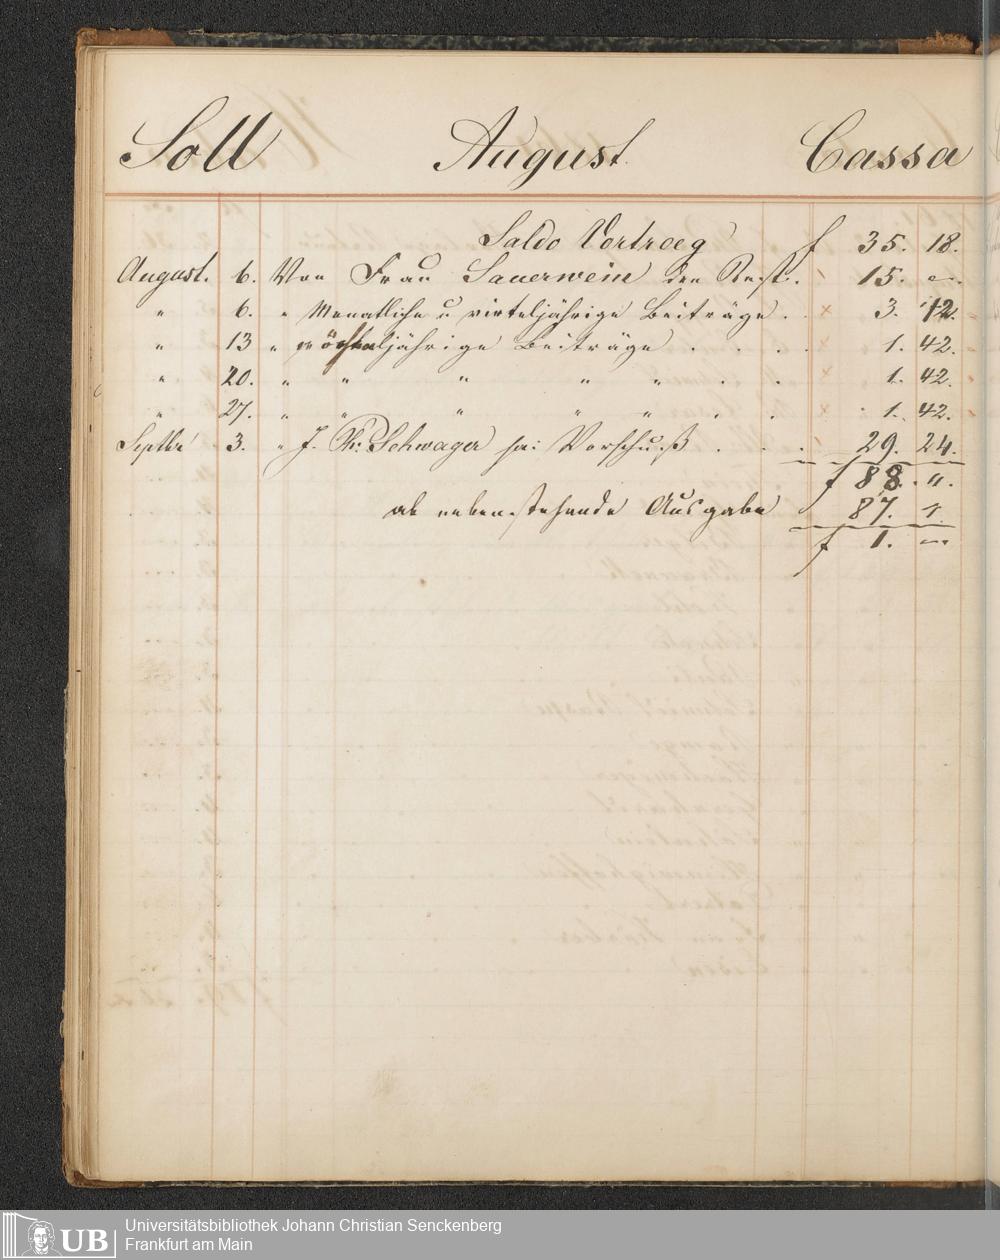 Soll August Cassa
Saldo Vortrag f 35. 18.
August. 6. Von Frau Sauerwein den Rest. 15. "
" 6. " Monatliche u virteljährige Beiträge . 3. 12.
" 13 " jährige Beiträge . . . . 1. 42.
" 20. " " " " " . . 1. 42.
" 27. " " " " " . . 1. 42.
Septbr 3. " J. Ph: Schwager sei Vorschuß . . . 29. 24.
f 88. ".
ab nebenstehende Ausgabe 87. "
f 1. "
Universitätsbibliothek Johann Christian Senckenberg
Frankfurt am Main
UB